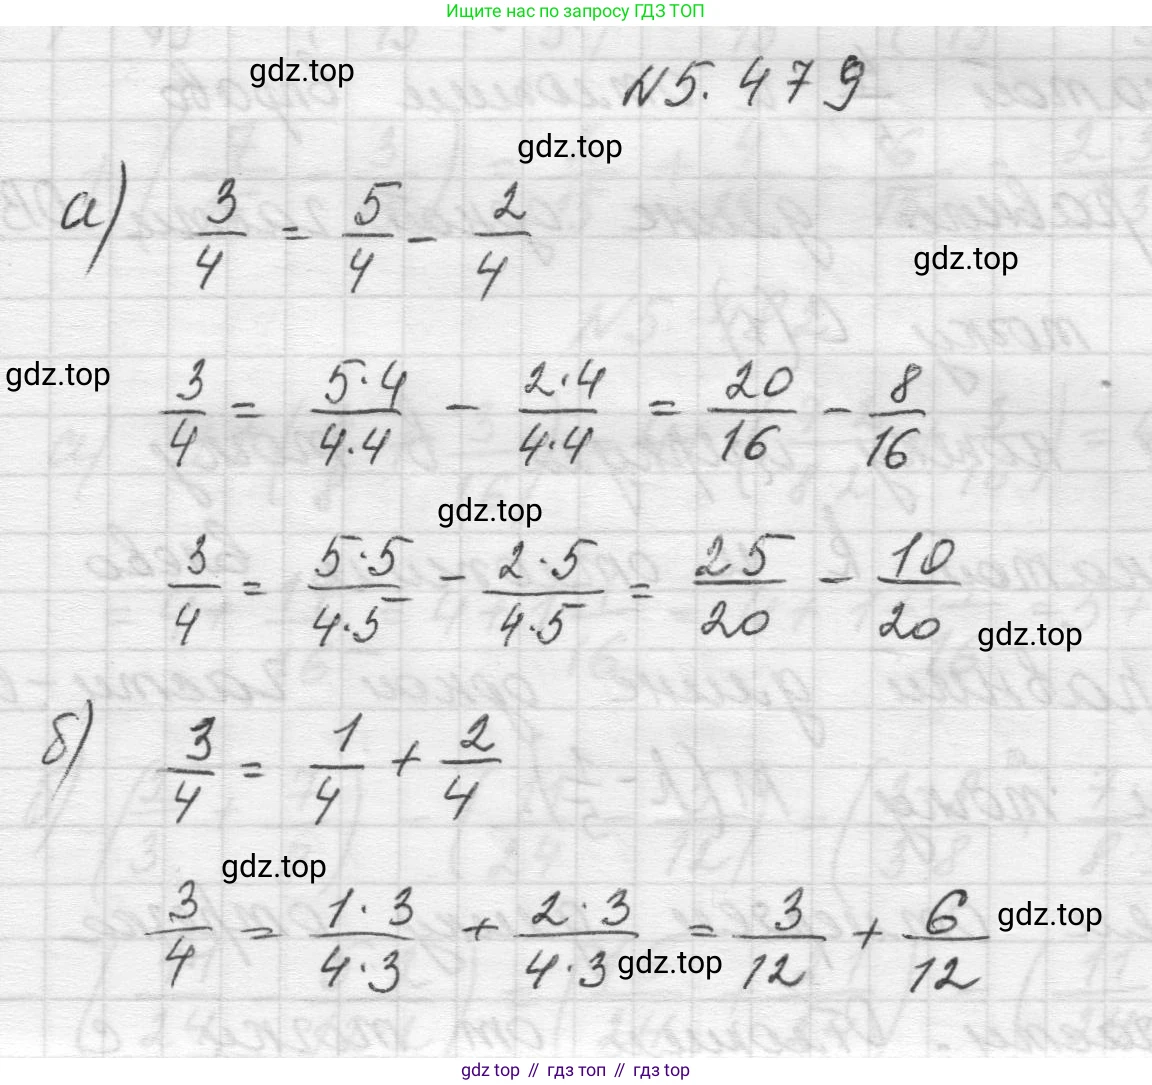 Ищите нас по запросу ГДЗ ТОП
gdz.top
№5.479
gdz.top
а) 3/4 = 5/4 - 2/4
gdz.top
gdz.top
3/4 = 5·4/4·4 - 2·4/4·4 = 20/16 - 8/16
gdz.top
3/4 = 5·5/4·5 - 2·5/4·5 = 25/20 - 10/20
gdz.top
б) 3/4 = 1/4 + 2/4
gdz.top
3/4 = 1·3/4·3 + 2·3/4·3 = 3/12 + 6/12
gdz.top
gdz.top
gdz top // гдз топ // gdz top